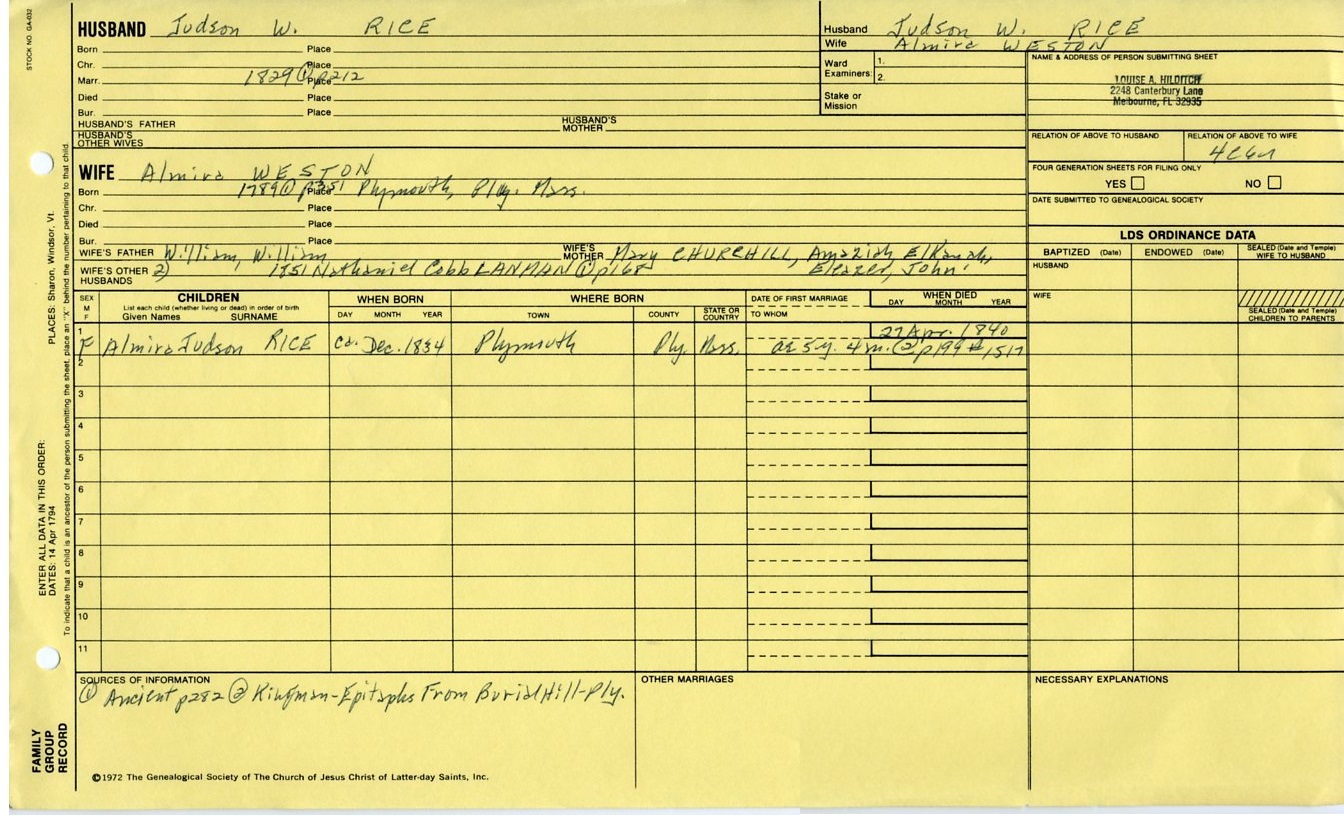 STOCK NO. GA-032
HUSBAND Judson W. RICE
Born Place
Chr. Place
Marr. 1829 ① p212 Place
Died Place
Bur. Place
HUSBAND'S FATHER HUSBAND'S MOTHER
HUSBAND'S OTHER WIVES
Husband Judson W. RICE
Wife Almira WESTON
Ward Examiners: 1. 2.
Stake or Mission
NAME & ADDRESS OF PERSON SUBMITTING SHEET
LOUISE A. HILDITCH
2248 Canterbury Lane
Melbourne, FL 32935
RELATION OF ABOVE TO HUSBAND RELATION OF ABOVE TO WIFE
FOUR GENERATION SHEETS FOR FILING ONLY
YES NO
DATE SUBMITTED TO GENEALOGICAL SOCIETY
WIFE Almira WESTON
Born 1789 ① Place Plymouth, Ply. Mass.
Chr. Place
Died Place
Bur. Place
WIFE'S FATHER William, William WIFE'S MOTHER Mary CHURCHILL, Amaziah, Elkanah, Eleazer, John
WIFE'S OTHER HUSBANDS 2) 1851 Nathaniel Cobb LANMAN ① p168
LDS ORDINANCE DATA
BAPTIZED (Date) ENDOWED (Date) SEALED (Date and Temple) WIFE TO HUSBAND
HUSBAND
WIFE
SEALED (Date and Temple) CHILDREN TO PARENTS
SEX M F
CHILDREN
List each child (whether living or dead) in order of birth
Given Names SURNAME
WHEN BORN
DAY MONTH YEAR
WHERE BORN
TOWN COUNTY STATE OR COUNTRY
DATE OF FIRST MARRIAGE
TO WHOM
WHEN DIED
DAY MONTH YEAR
1 27 Apr. 1840
F Almira Judson RICE ca. Dec. 1834 Plymouth Ply. Mass. ae 5 y. 4 m. ② p199 #1517
2
3
4
5
6
7
8
9
10
11
SOURCES OF INFORMATION
① Ancient p282 ② Kingman-Epitaphs From Burial Hill-Ply.
OTHER MARRIAGES
NECESSARY EXPLANATIONS
©1972 The Genealogical Society of The Church of Jesus Christ of Latter-day Saints, Inc.
FAMILY GROUP RECORD
ENTER ALL DATA IN THIS ORDER:
DATES: 14 Apr 1794
PLACES: Sharon, Windsor, Vt.
To indicate that a child is an ancestor of the person submitting the sheet, place an "X" behind the number pertaining to that child.